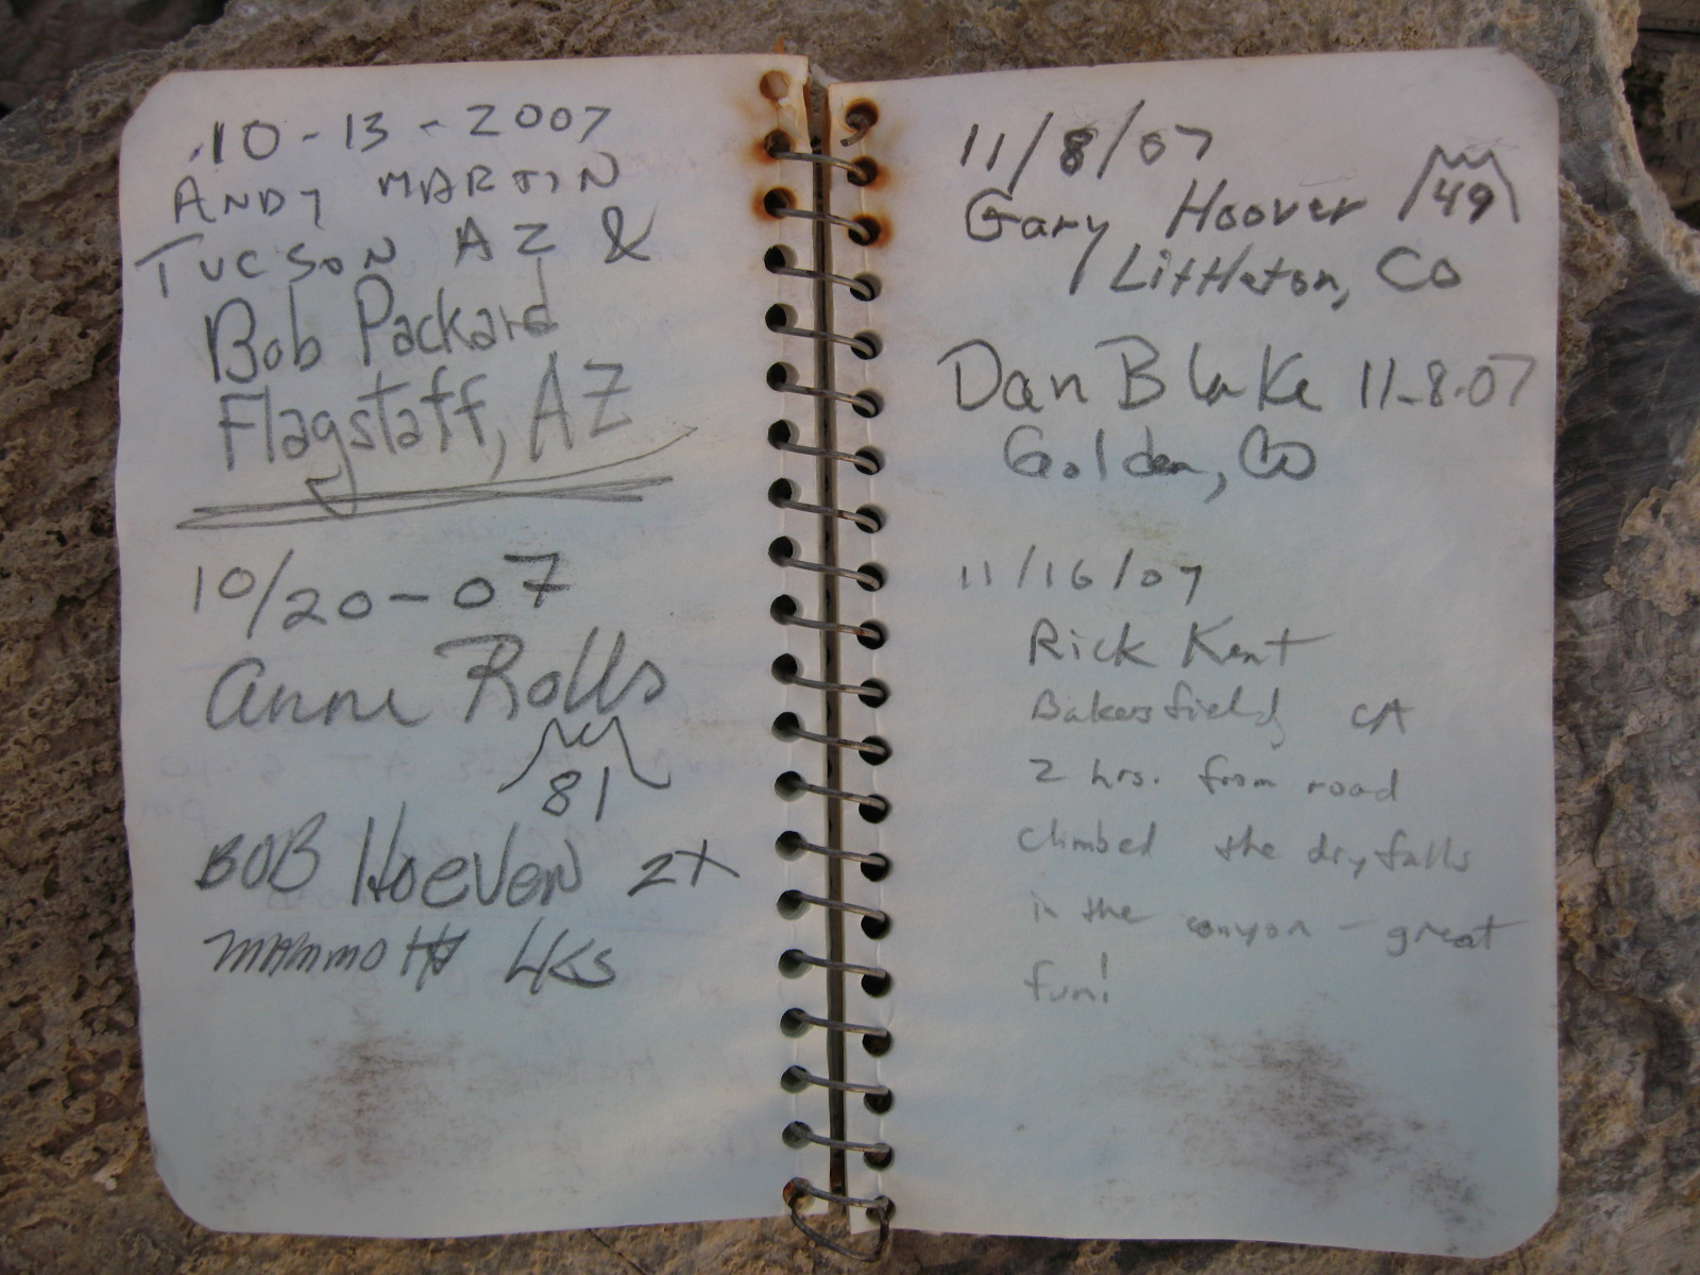 10-13-2007
ANDY MARTIN
TUCSON AZ &
Bob Packard
Flagstaff, AZ
10/20-07
Anne Rolls
81
BOB Hoeven 2X
MAMMOTH LKS
11/8/07
Gary Hoover 49
Littleton, CO
Dan Blake 11-8-07
Golden, CO
11/16/07
Rick Kent
Bakersfield CA
2 hrs. from road
climbed the dryfalls
in the canyon - great
fun!